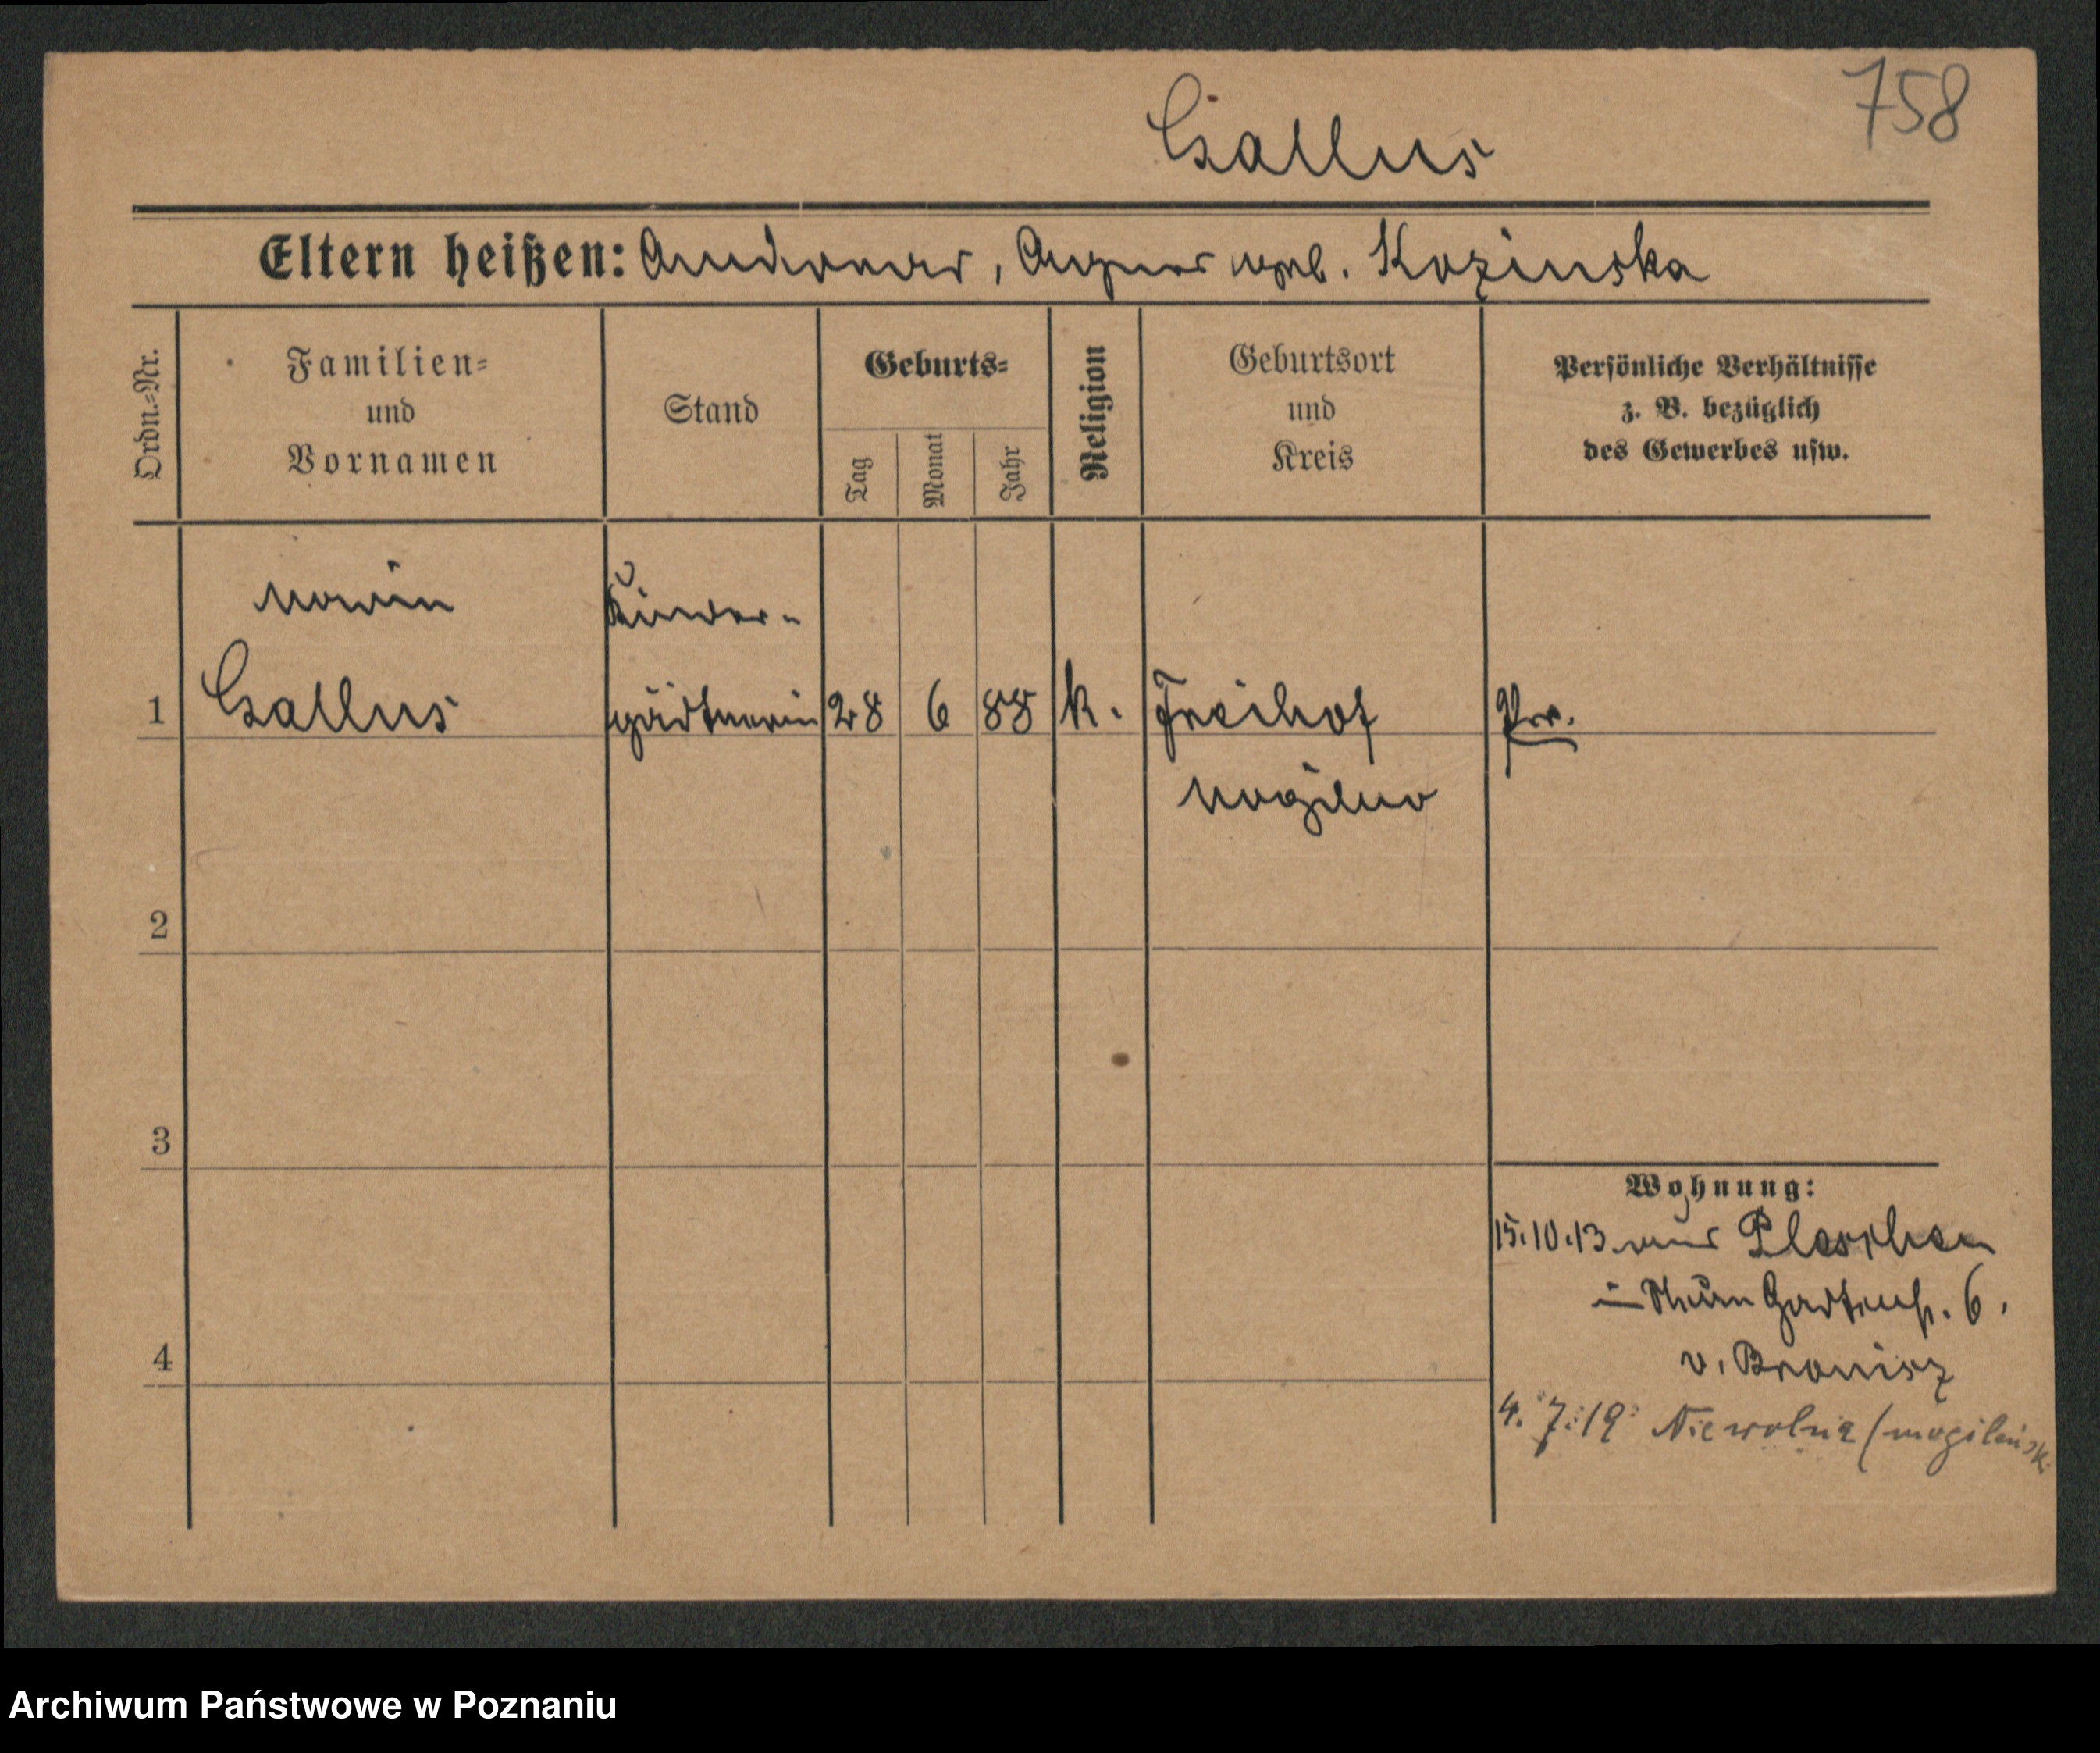 758
Gallus
Eltern heißen: Andreas, Agnes geb. Kozinska
Ordn.-Nr.
Familien-
und
Vornamen
Stand
Geburts-
Tag
Monat
Jahr
Religion
Geburtsort
und
Kreis
Persönliche Verhältnisse
z. B. bezüglich
des Gewerbes usw.
Maria Kinder-
1 Gallus gärtnerin 28 6 88 k. Freihof Pr.
Mogilno
2
3
Wohnung:
15.10.13 aus Pleschen
Gartenstr. 6.
4 v. Bronisz
4. 7. 19 Niewolna (mogilińsk.
Archiwum Państwowe w Poznaniu